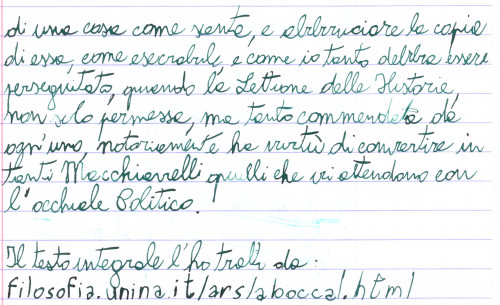 di una cosa come santa, e abbrucciare la copia
di essa, come esecrabile, e come io tanto debba essere
perseguitato, quando la Lettione delle Historie,
non solo permessa, ma tanto commendata da
ogn'uno, notoriamente ha virtù di convertire in
tanti Macchiavelli quelli che vi attendono con
l'occhiale Politico.
Il testo integrale l'ho tratto da:
filosofia.unina.it/ars/abocca1.html